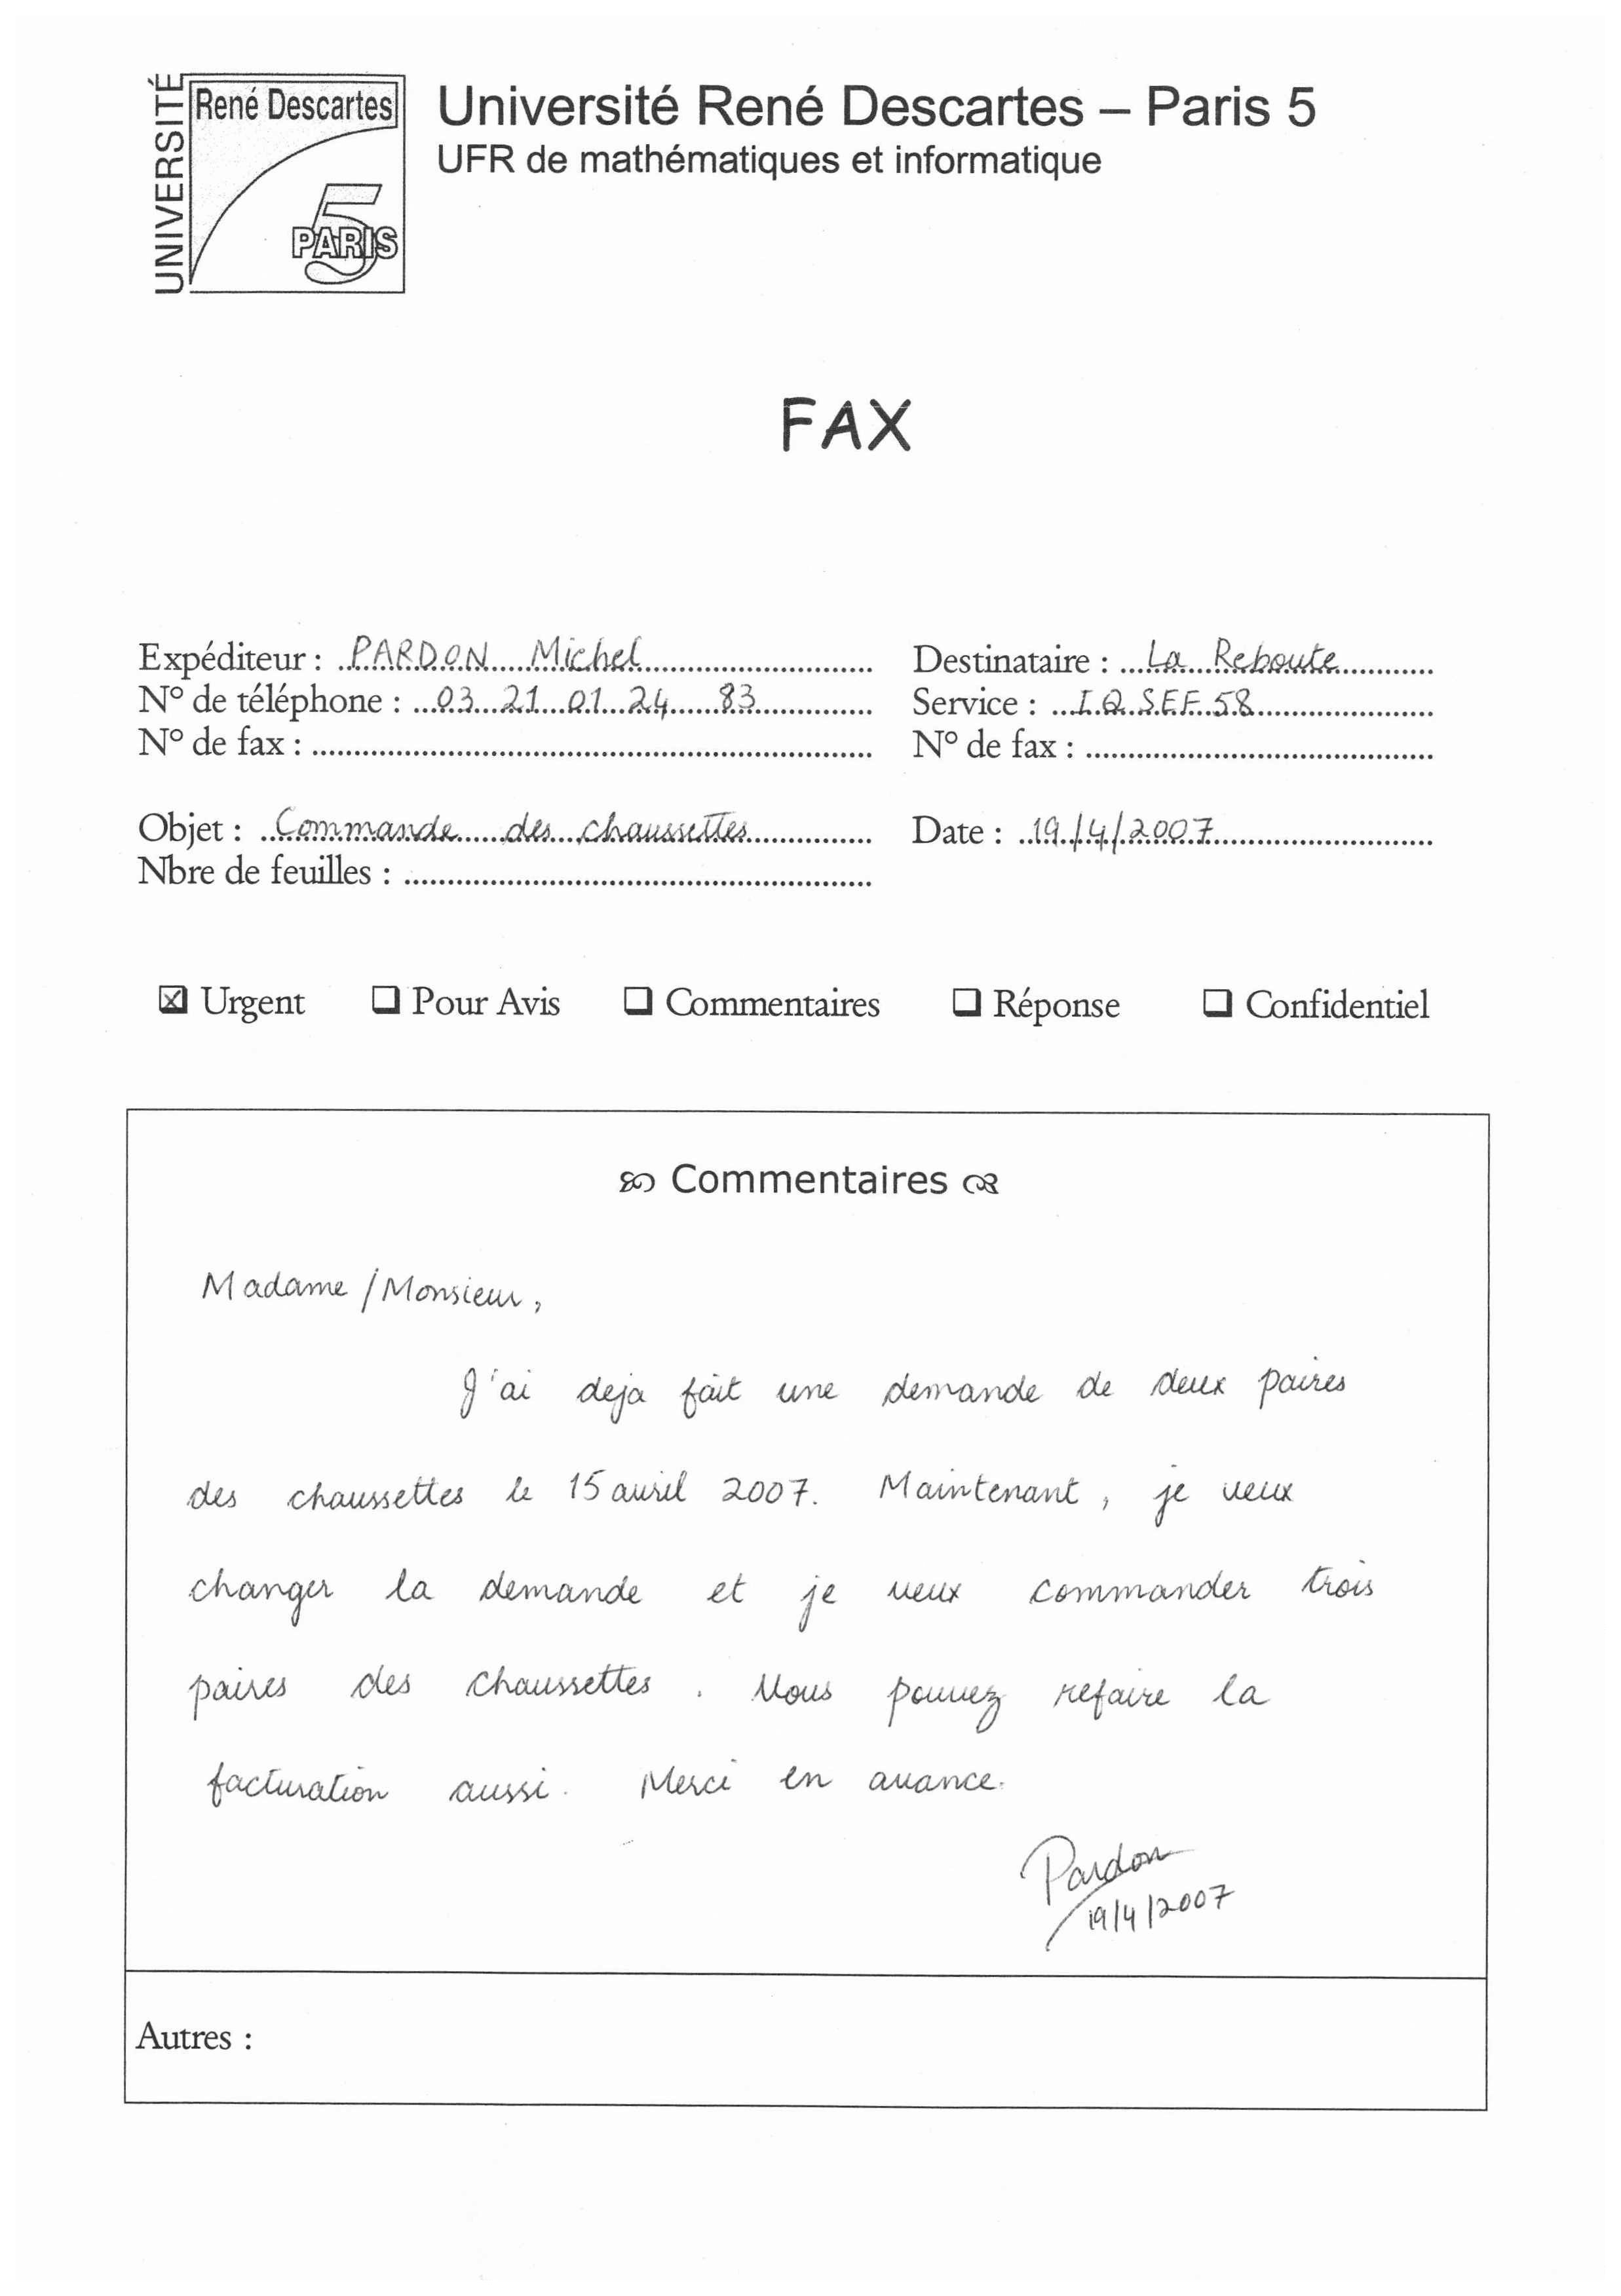 UNIVERSITÉ
René Descartes
PARIS 5
Université René Descartes – Paris 5
UFR de mathématiques et informatique
FAX
Expéditeur : PARDON Michel
Destinataire : La Reboute
N° de téléphone : 03 21 01 24 83
Service : I.Q.S.E.F. 58
N° de fax :
N° de fax :
Objet : Commande des chaussettes
Date : 19/4/2007
Nbre de feuilles :
☒ Urgent ☐ Pour Avis ☐ Commentaires ☐ Réponse ☐ Confidentiel
Commentaires
Madame/Monsieur,
J'ai deja fait une demande de deux paires
des chaussettes le 15 avril 2007. Maintenant, je veux
changer la demande et je veux commander trois
paires des chaussettes. Vous pouvez refaire la
facturation aussi. Merci en avance.
Pardon
19/4/2007
Autres :